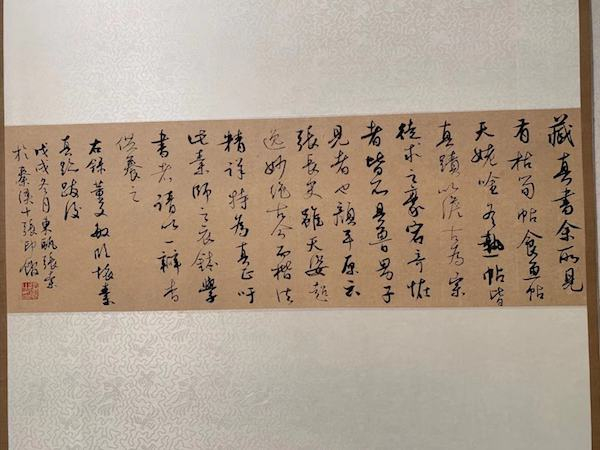 藏真書余所見
有枯筍帖食魚帖
天姥吟冬熱帖皆
真蹟以淡古為宗
徒求之豪宕奇怪
者皆不具魯男子
見者也顏平原云
張長史雖天姿超
逸妙絕古今而楷法
精詳特為真正吁
此素師之衣缽學
書者請以一瓣香
供養之
右錄董文敏 懷素
真跡跋後
戊戌冬月東甌張索
於秦漢十 印館